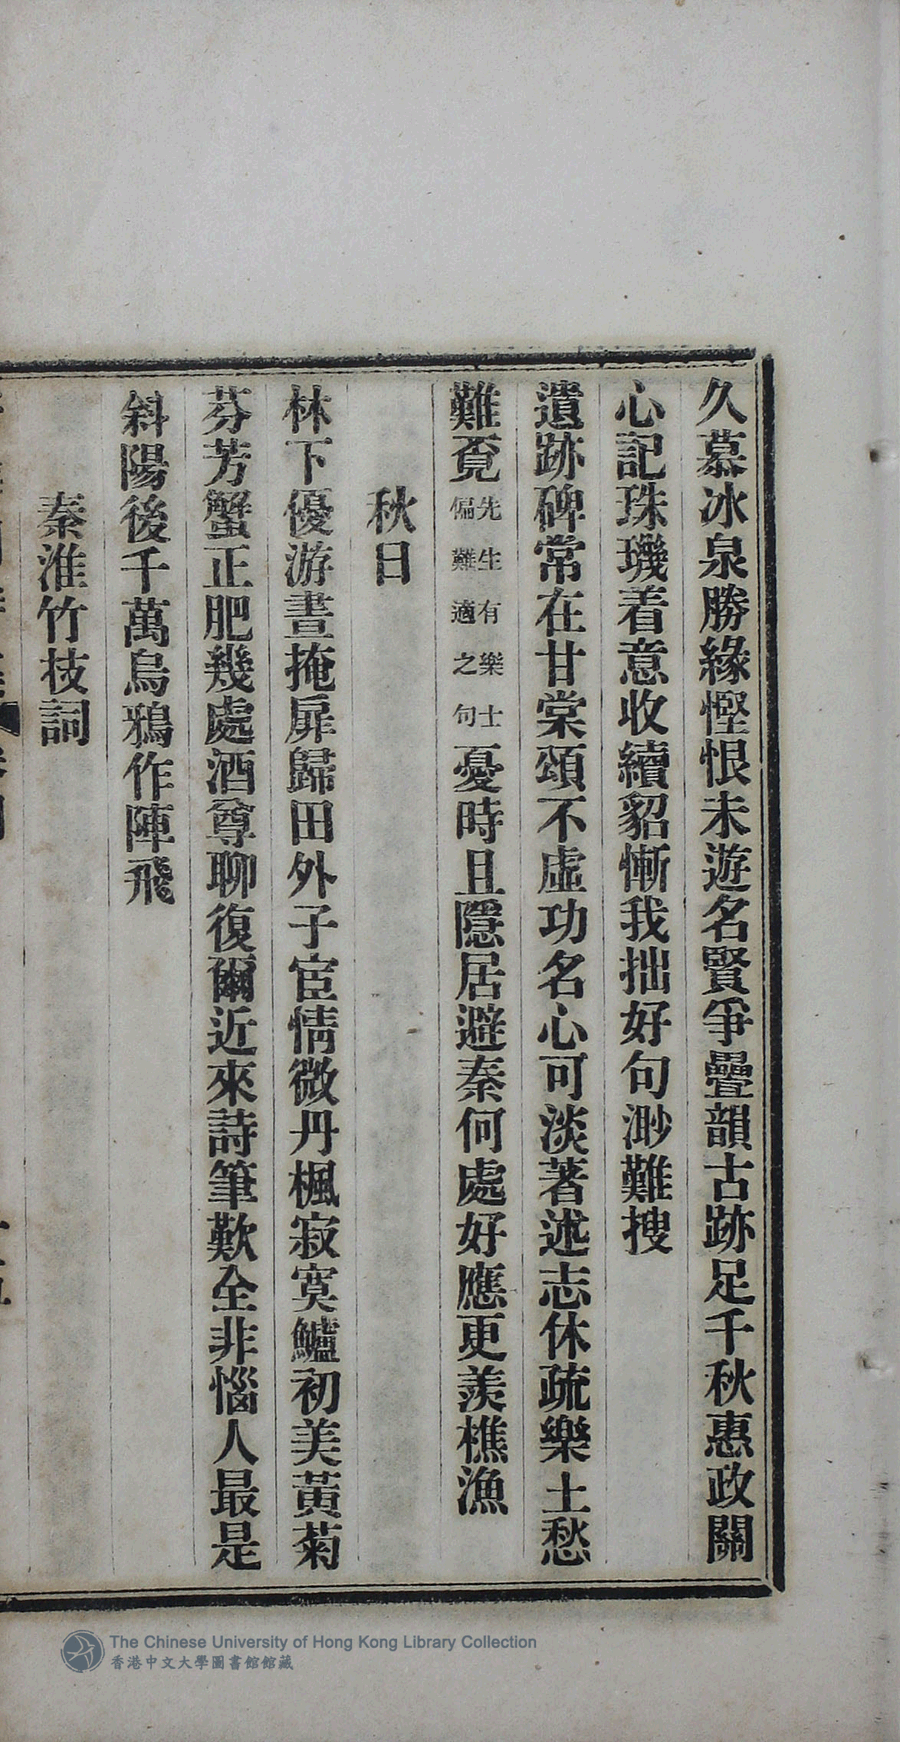 久慕冰泉勝緣慳恨未遊名賢爭疊韻古跡足千秋惠政關
心記珠璣着意收續貂慚我拙好句渺難搜
遺跡碑常在甘棠頌不虛功名心可淡著述志休疏樂土愁
難覓先生有樂士偏難適之句憂時且隱居避秦何處好應更羨樵漁
秋日
林下優游晝掩扉歸田外子宦情微丹楓寂寞鱸初美黃菊
芬芳蟹正肥幾處酒尊聊復爾近來詩筆歎全非惱人最是
斜陽後千萬烏鴉作陣飛
秦淮竹枝詞
The Chinese University of Hong Kong Library Collection
香港中文大學圖書館館藏